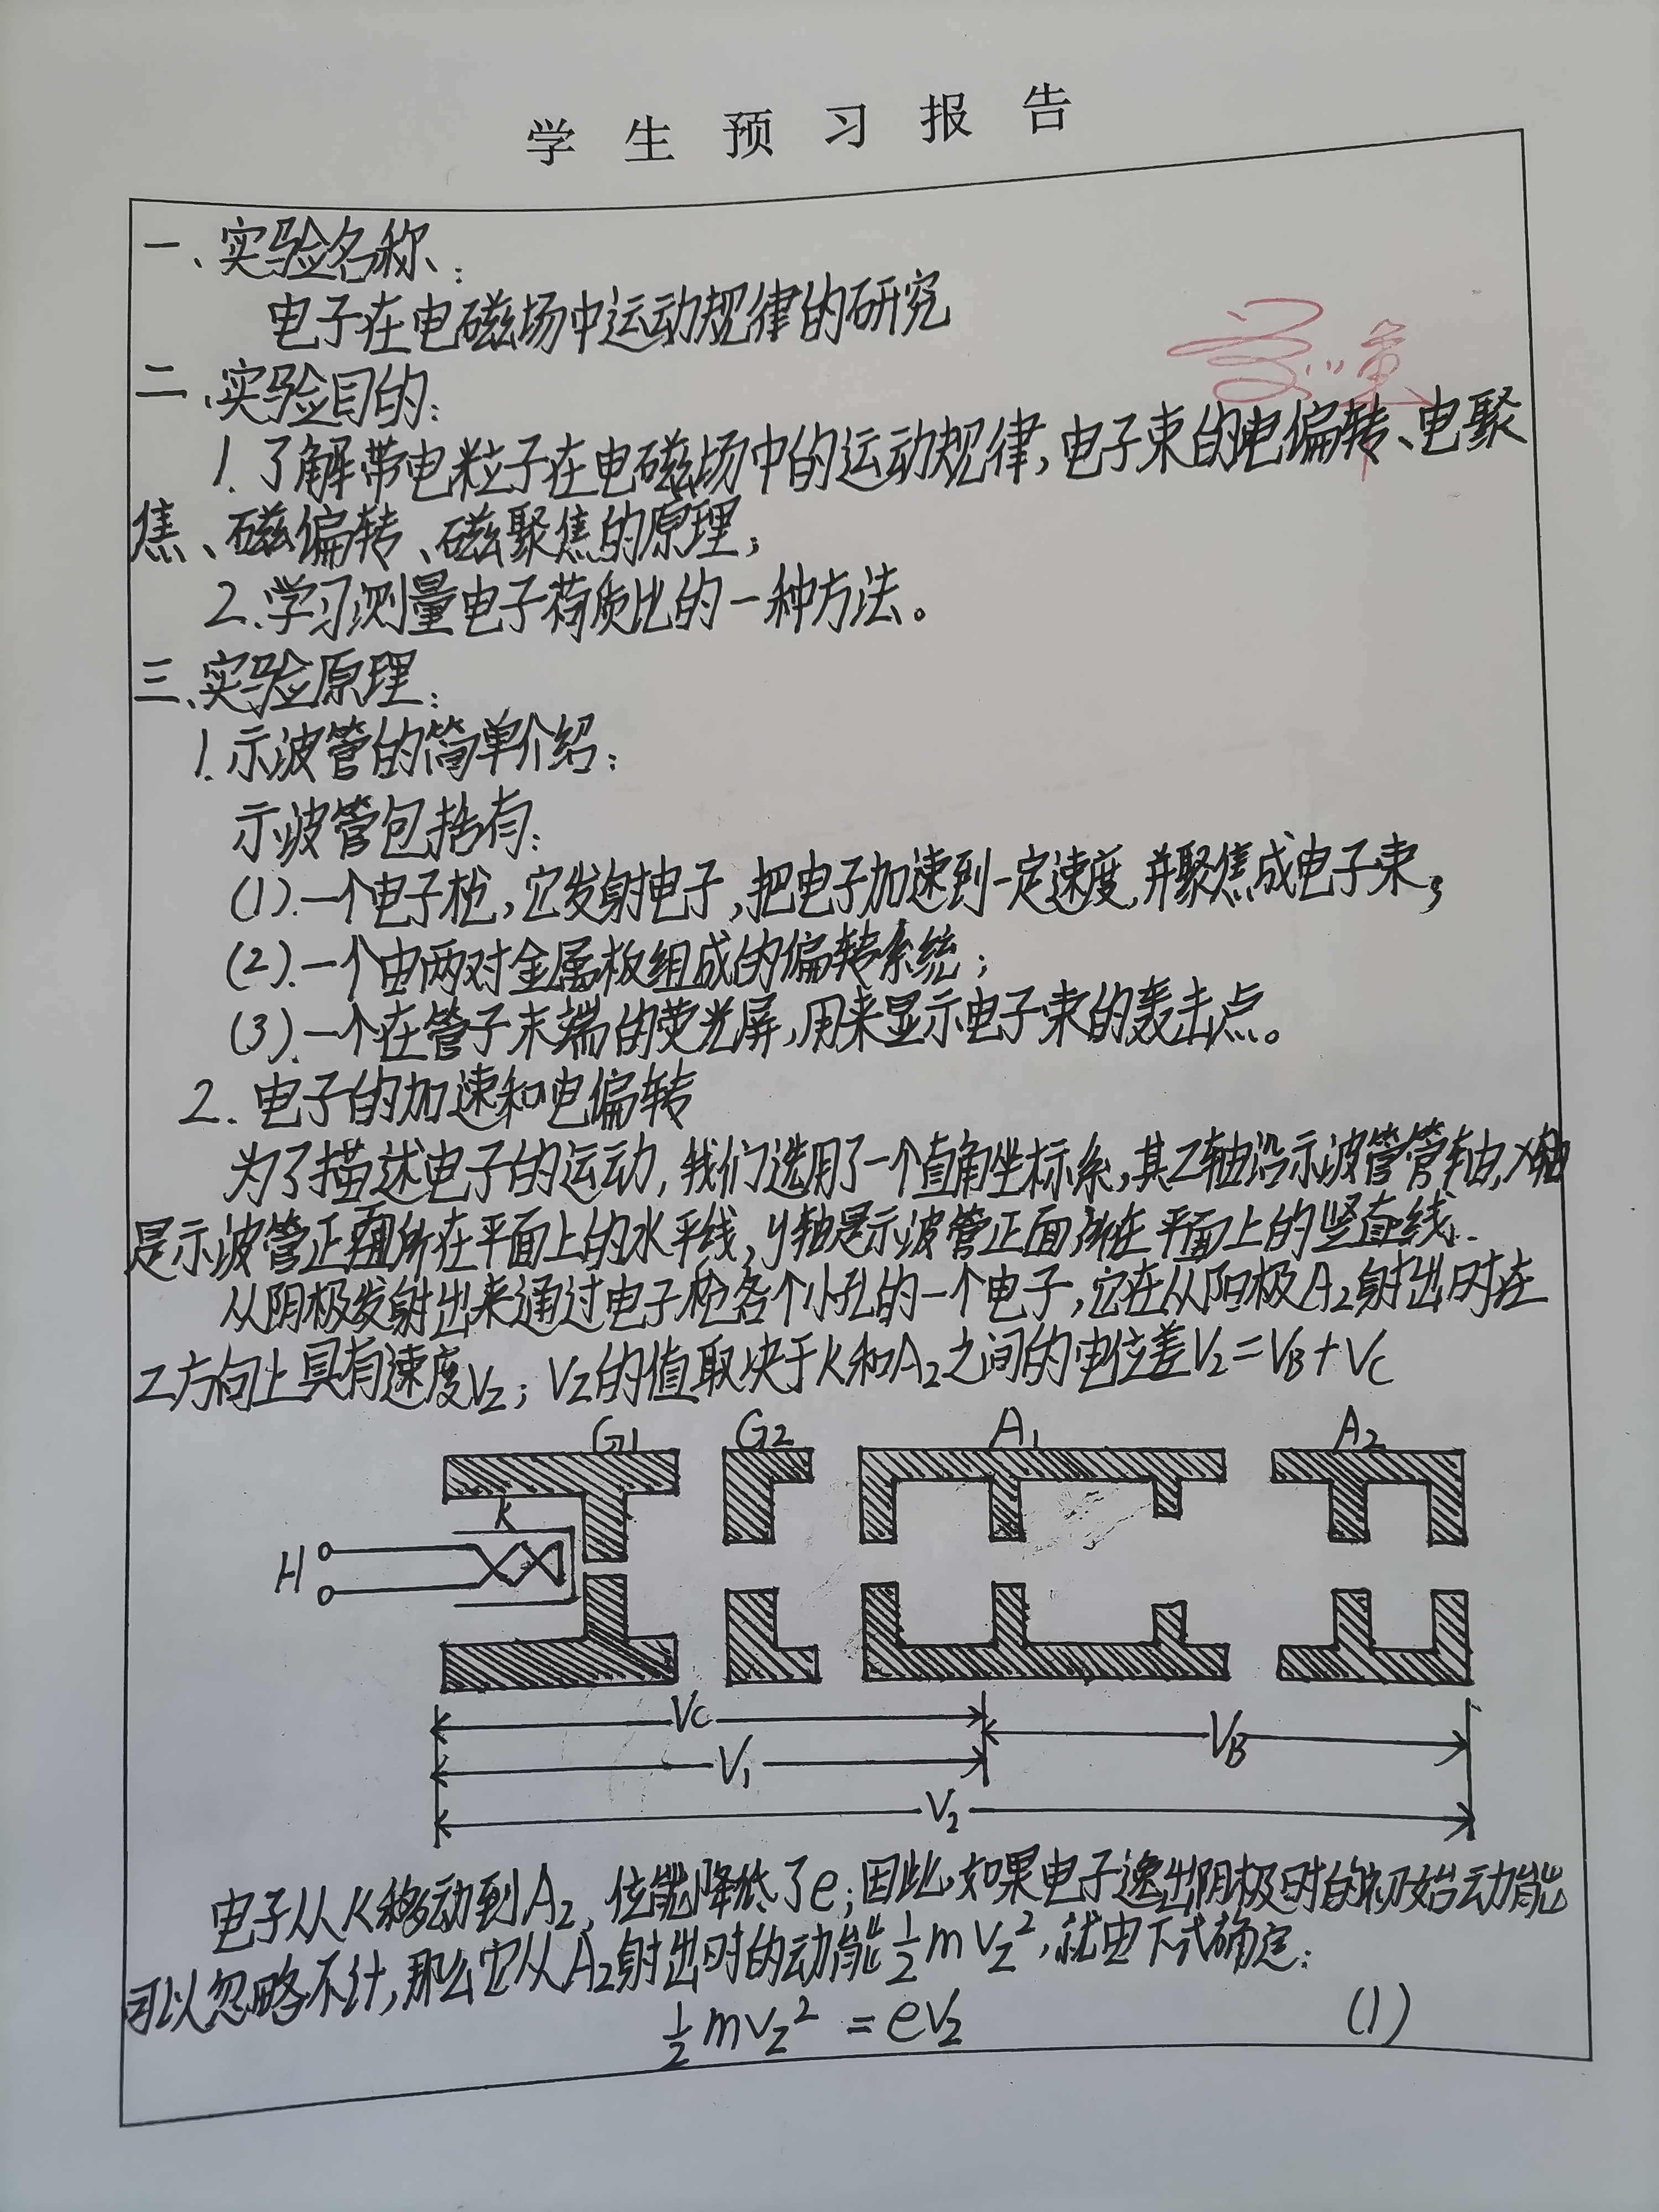 学生预习报告
一、实验名称:
电子在电磁场中运动规律的研究
二、实验目的:
1.了解带电粒子在电磁场中的运动规律,电子束的电偏转、电聚
焦、磁偏转、磁聚焦的原理;
2.学习测量电子荷质比的一种方法。
三、实验原理:
1.示波管的简单介绍:
示波管包括有:
(1).一个电子枪,它发射电子,把电子加速到一定速度,并聚焦成电子束;
(2).一个由两对金属板组成的偏转系统;
(3).一个在管子末端的荧光屏,用来显示电子束的轰击点。
2.电子的加速和电偏转
为了描述电子的运动,我们选用了一个直角坐标系,其Z轴沿示波管管轴,X轴
是示波管正面所在平面上的水平线,y轴是示波管正面所在平面上的竖直线.
从阴极发射出来通过电子枪各个小孔的一个电子,它在从阳极A₂射出时在
Z方向上具有速度Vz;Vz的值取决于K和A₂之间的电位差V₂=VB+VC
G₁ G₂ A₁ A₂
K
H
VC
VB
V₁
V₂
电子从K移动到A₂,位能降低了e;因此,如果电子逸出阴极时的初始动能
可以忽略不计,那么它从A₂射出时的动能½mVz²,就由下式确定:
½mVz²=eV₂ (1)